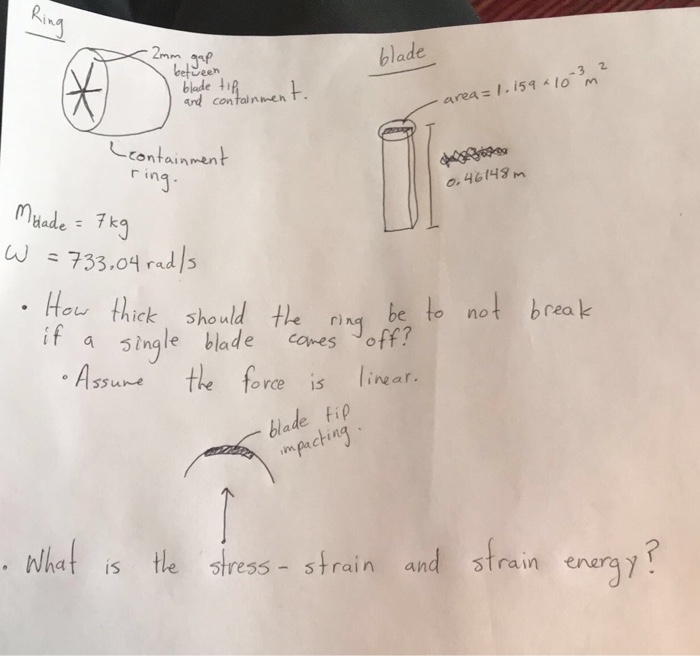 Ring
2mm gap
between
blade tip
and containment.
containment
ring.
blade
area = 1.159 × 10⁻³ m²
0.46148 m
Mblade = 7 kg
ω = 733.04 rad/s
• How thick should the ring be to not break
if a single blade comes off?
• Assume the force is linear.
blade tip
impacting.
• What is the stress - strain and strain energy?